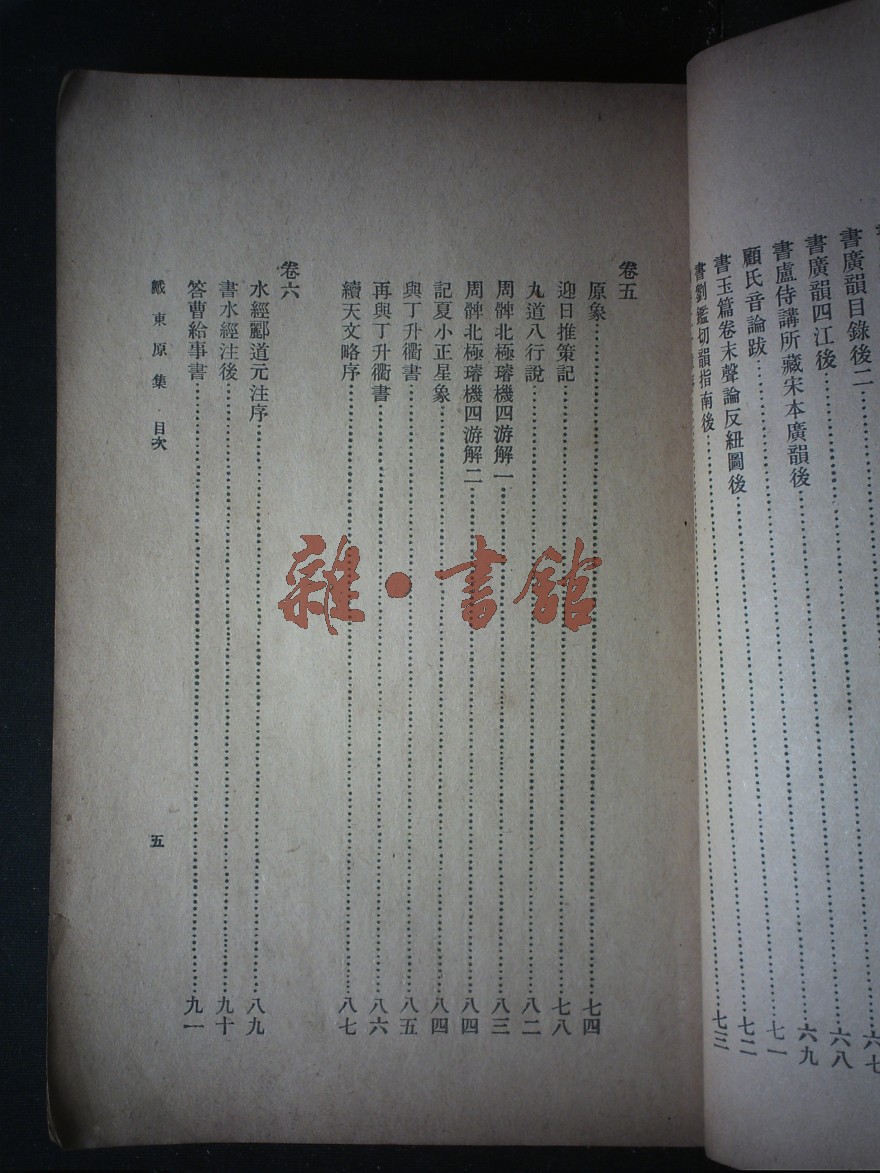 書廣韻目錄後二……六七
書廣韻四江後……六八
書盧侍講所藏宋本廣韻後……六九
顧氏音論跋……七一
書玉篇卷末聲論反紐圖後……七二
書劉鑑切韻指南後……七三
卷五
原象……七四
迎日推策記……七八
九道八行說……八二
周髀北極璿機四游解一……八三
周髀北極璿機四游解二……八四
記夏小正星象……八四
與丁升衢書……八五
再與丁升衢書……八六
續天文略序……八七
卷六
水經酈道元注序……八九
書水經注後……九十
答曹給事書……九一
戴東原集·目次
五
雜·書館